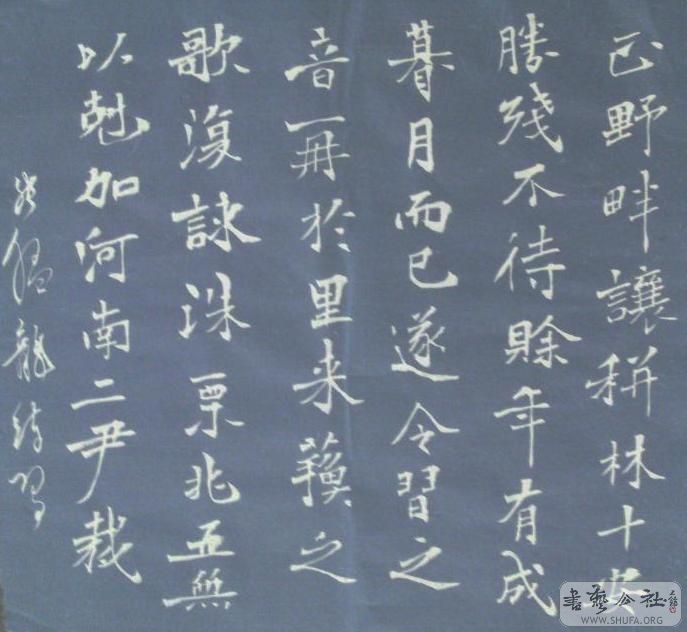 野畔讓林十
勝殘不待賖年有成
暮月而已遂令習之
音再於里来之
歌復詠洙兆無
以尅加河南二尹裁
龍習
書藝公社
WWW.SHUFA.ORG